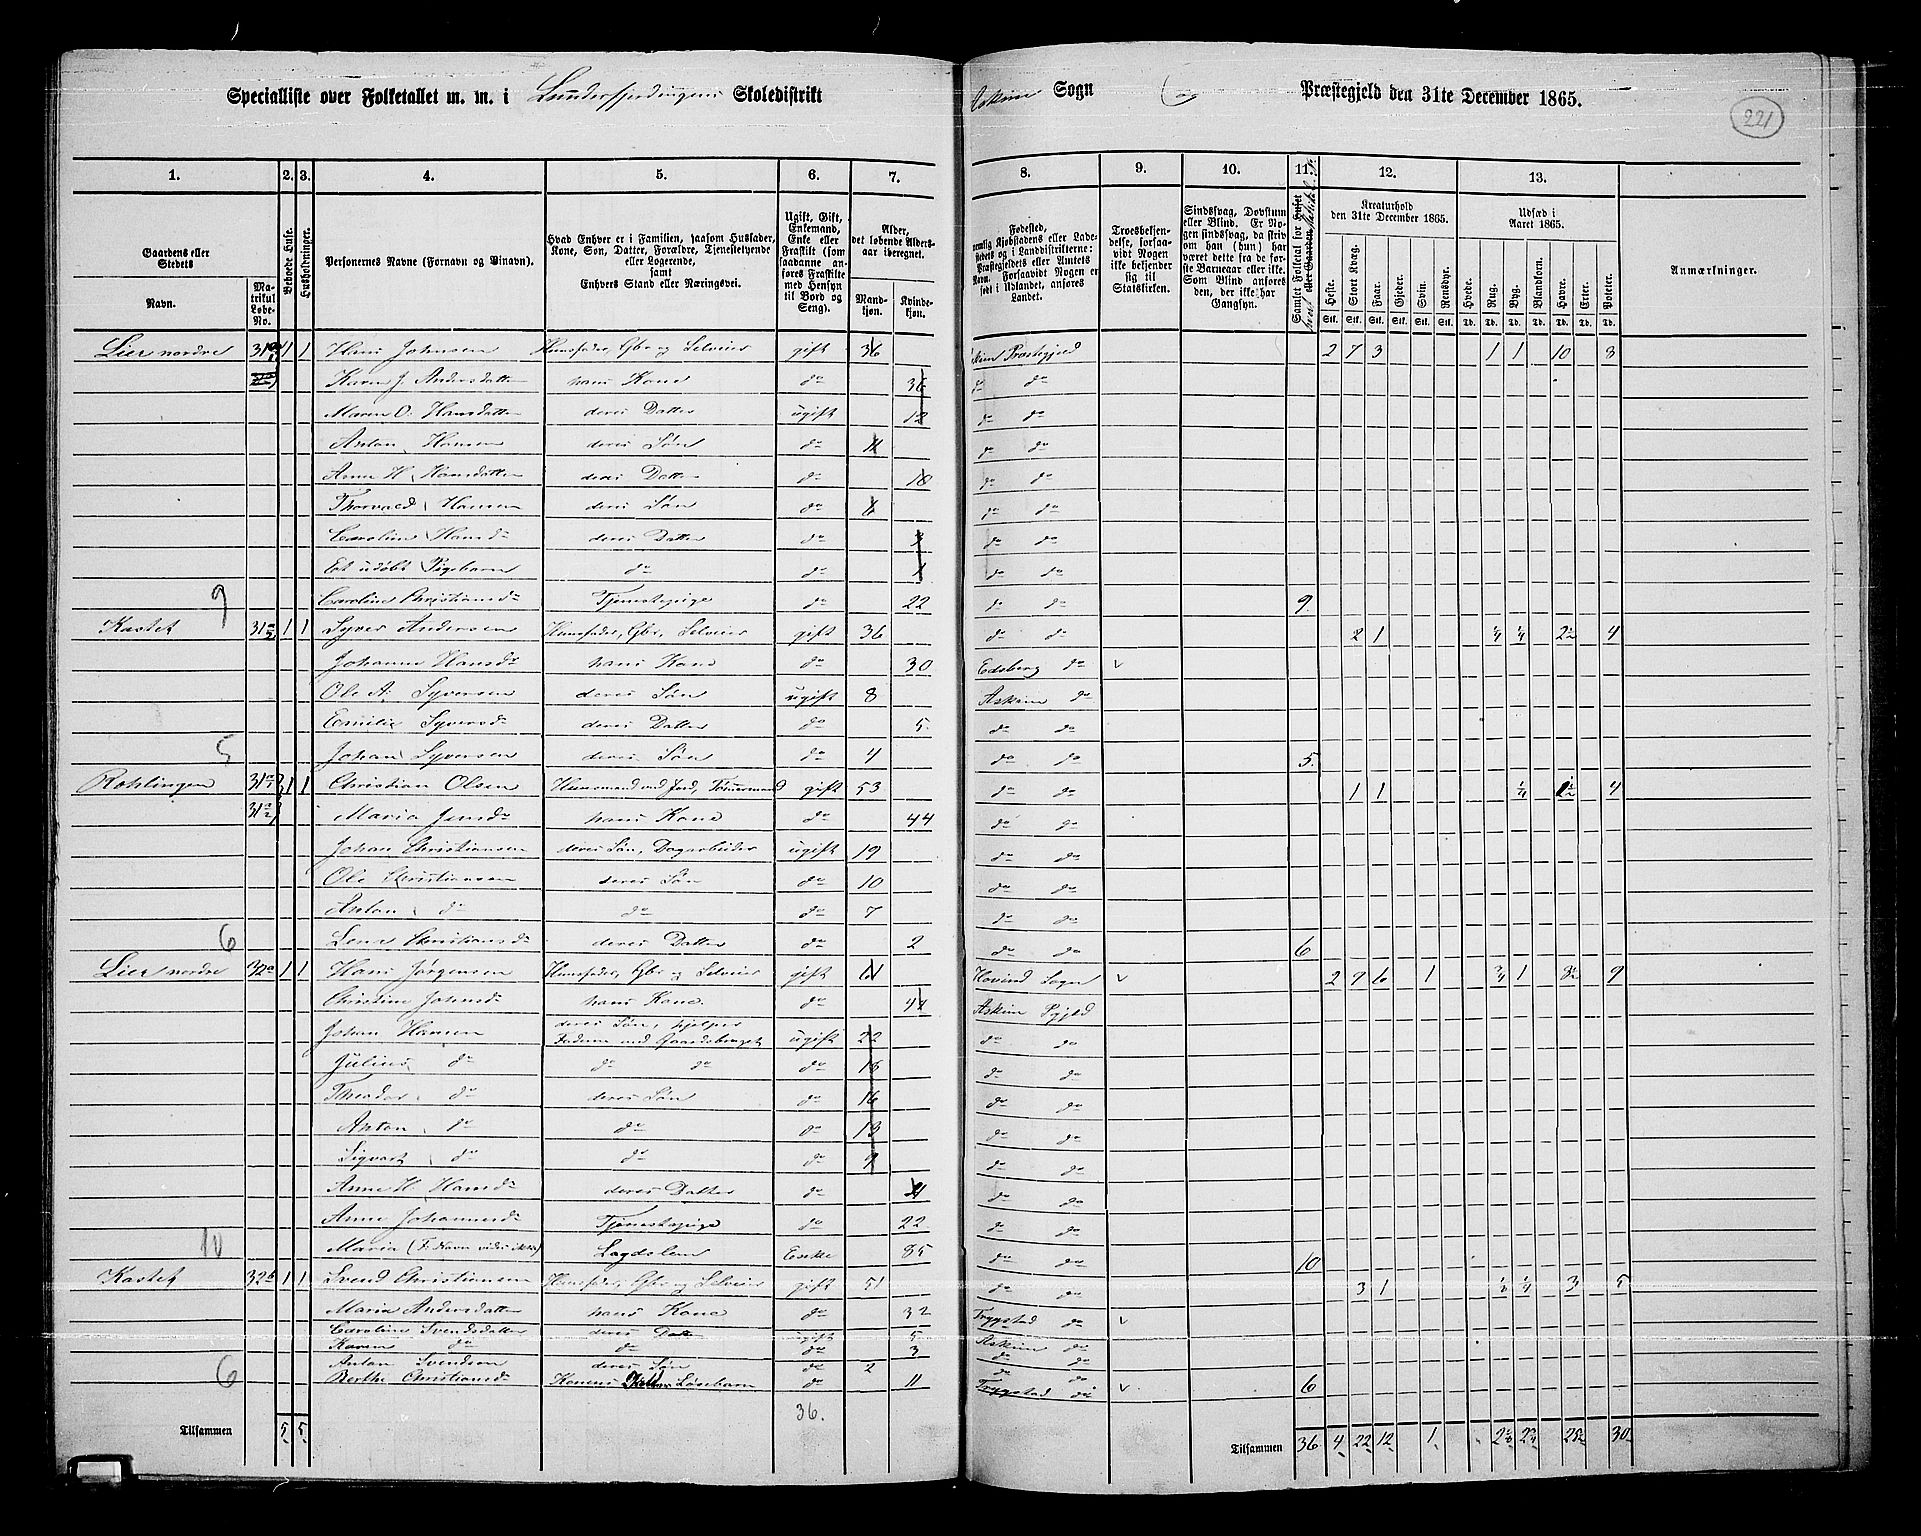 Specialliste over Folketallet m. m. i Skoledistrikt
Askim Sogn Præstegjeld den 31te December 1865.
221
1. 2. 3. 4. 5. 6. 7.
8. 9. 10. 11. 12. 13.
Gaardens eller Stedets
Navn.
Matrikul Løbe-No.
Beboede Huse.
Husholdninger.
Personernes Navne (Fornavn og Tilnavn).
Hvad Enhver er i Familien, saasom Husfader, Kone, Søn, Datter, Forældre, Tjenestetyende eller Logerende,
samt
Enhvers Stand eller Næringsvei.
Ugift, Gift, Enkemand, Enke eller Fraskilt (som saadanne anføres Fraskilte med Hensyn til Bord og Seng).
Alder, det løbende Aldersaar iberegnet.
Mandkjøn. Kvindekjøn.
Troesbekjendelse, forsaavidt Nogen ikke bekjender sig til Statskirken.
Sindssvag, Døvstum eller Blind. Er Nogen sindssvag, da skrives om han (hun) har været dette fra de første Barneaar eller ikke. Som Blind anføres den, der ikke har Gangsyn.
Kreaturhold den 31te December 1865.
Heste. Stort Kvæg. Faar. Gjeder. Svin. Rensdyr.
Udsæd i Aaret 1865.
Hvede. Rug. Byg. Blandkorn. Havre. Erter. Poteter.
Anmærkninger.
Lier nordre 31 1 1 Hans Johnsen Huusfader, Gbr. og Selveier gift 36 Præstegjeld 2 7 3 1 1 10 3
Karen J. Andersdatter hans Kone do 36 do do
Maren O. Hansdatter deres Datter ugift 12 do do
Anton Hansen deres Søn do 11 do do
Anne H. Hansdatter deres Datter do 10 do do
Thorvald Hansen deres Søn do do do
Caroline Hansd deres Datter do 3 do do
Et udøbt Pigebarn do do 1 do do
9 Caroline Christiansd Tjenestepige do 22 do do 9
Kastet 31 1 1 Syver Andersen Huusfader, Gbr, Selveier gift 36 do do 2 1 ¼ ¼ 2½ 4
Johanne Hansd hans Kone do 30 Edsberg do
Ole A. Syversen deres Søn ugift 8 Askim do
Emilie Syversd deres Datter do 5 do do
5 Johan Syversen deres Søn do 4 do do 5
Rohlingen 31 1 1 Christian Olsen Huusmand med Jord, Tømmermand gift 53 do do 1 1 ¼ 1½ 4
31 Maria Jensd hans Kone do 44 do do
Johan Christiansen deres Søn, Dagarbeider ugift 19 do do
Ole Christiansen deres Søn do 10 do do
Anton do do do 7 do do
6 Lene Christiansd deres Datter do 2 do do 6
Lier nordre 32a 1 1 Hans Jørgensen Huusfader, Gbr og Selveier gift Hovind Sogn 2 9 6 1 ¾ 1 8½ 9
Christine Johnsd hans Kone do Askim Pgjeld
Johan Hansen deres Søn, hjelper Faderen med Gaardsbruget ugift 22 do do
Julius do do do do 18 do do
Theodor do deres Søn do 16 do do
Anton do do do 13 do do
Sigvart do do do 9 do do
Anne H. Hansd deres Datter do do do
Anne Johannesd Tjenestepige do 22 do do
10 Maria Lægdslem Enke 85 do do 10
Kastet 32b 1 1 Svend Christiansen Huusfader, Gbr og Selveier gift 51 do do 3 1 3 5
Maria Andersdatter hans Kone do 32 Trygstad do
Caroline Svendsdatter deres Datter ugift 5 Askim do
Karen do do do 3 do do
Anton Svendsen deres Søn do 2 do do
6 Berthe Christiansd Konens Løsebarn do 11 Trygstad do 6
36.
Tilsammen 5 5
Tilsammen 36 4 22 12 1 30